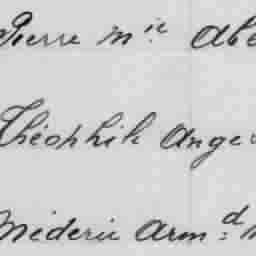 Pierre Mie Abe
Théophile Ange
Médéric Armd